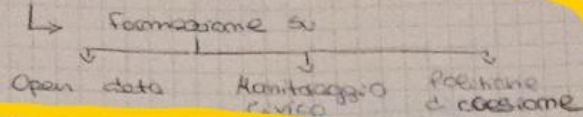 ↳ formazione su
Open data Monitoraggio Politiche
civico di coesione